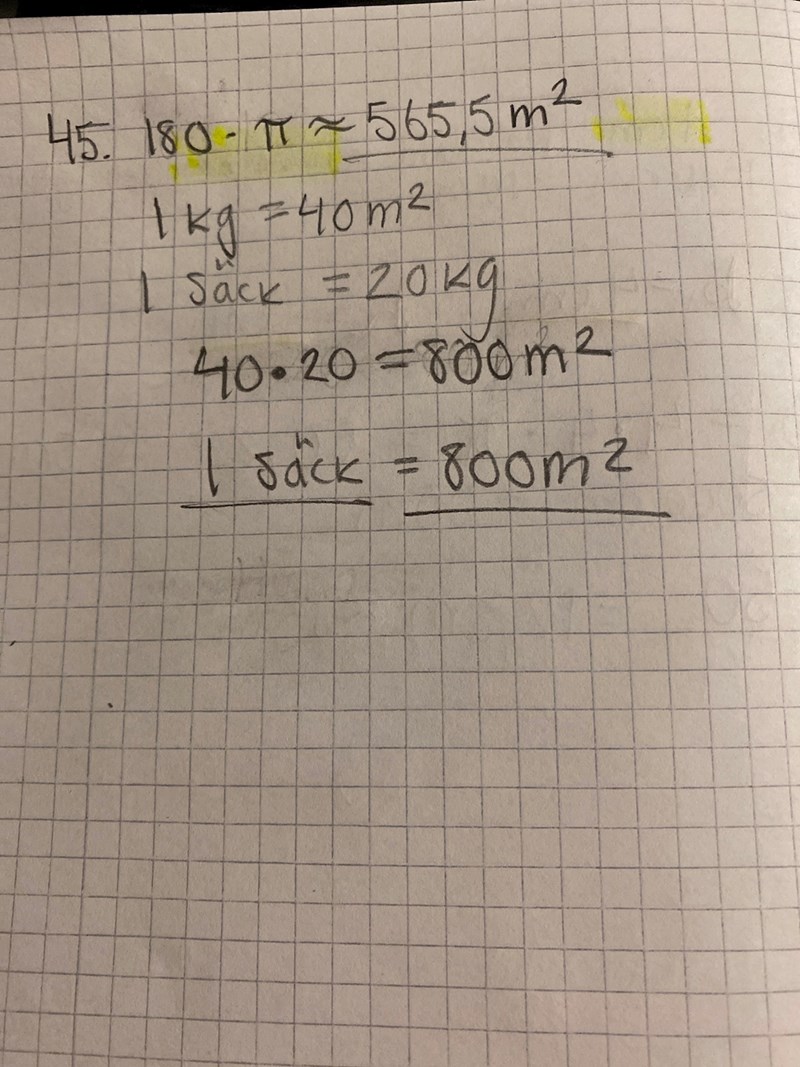 45. 180 · π ≈ 565,5 m²
1 kg = 40 m²
1 säck = 20 kg
40 · 20 = 800 m²
1 säck = 800 m²